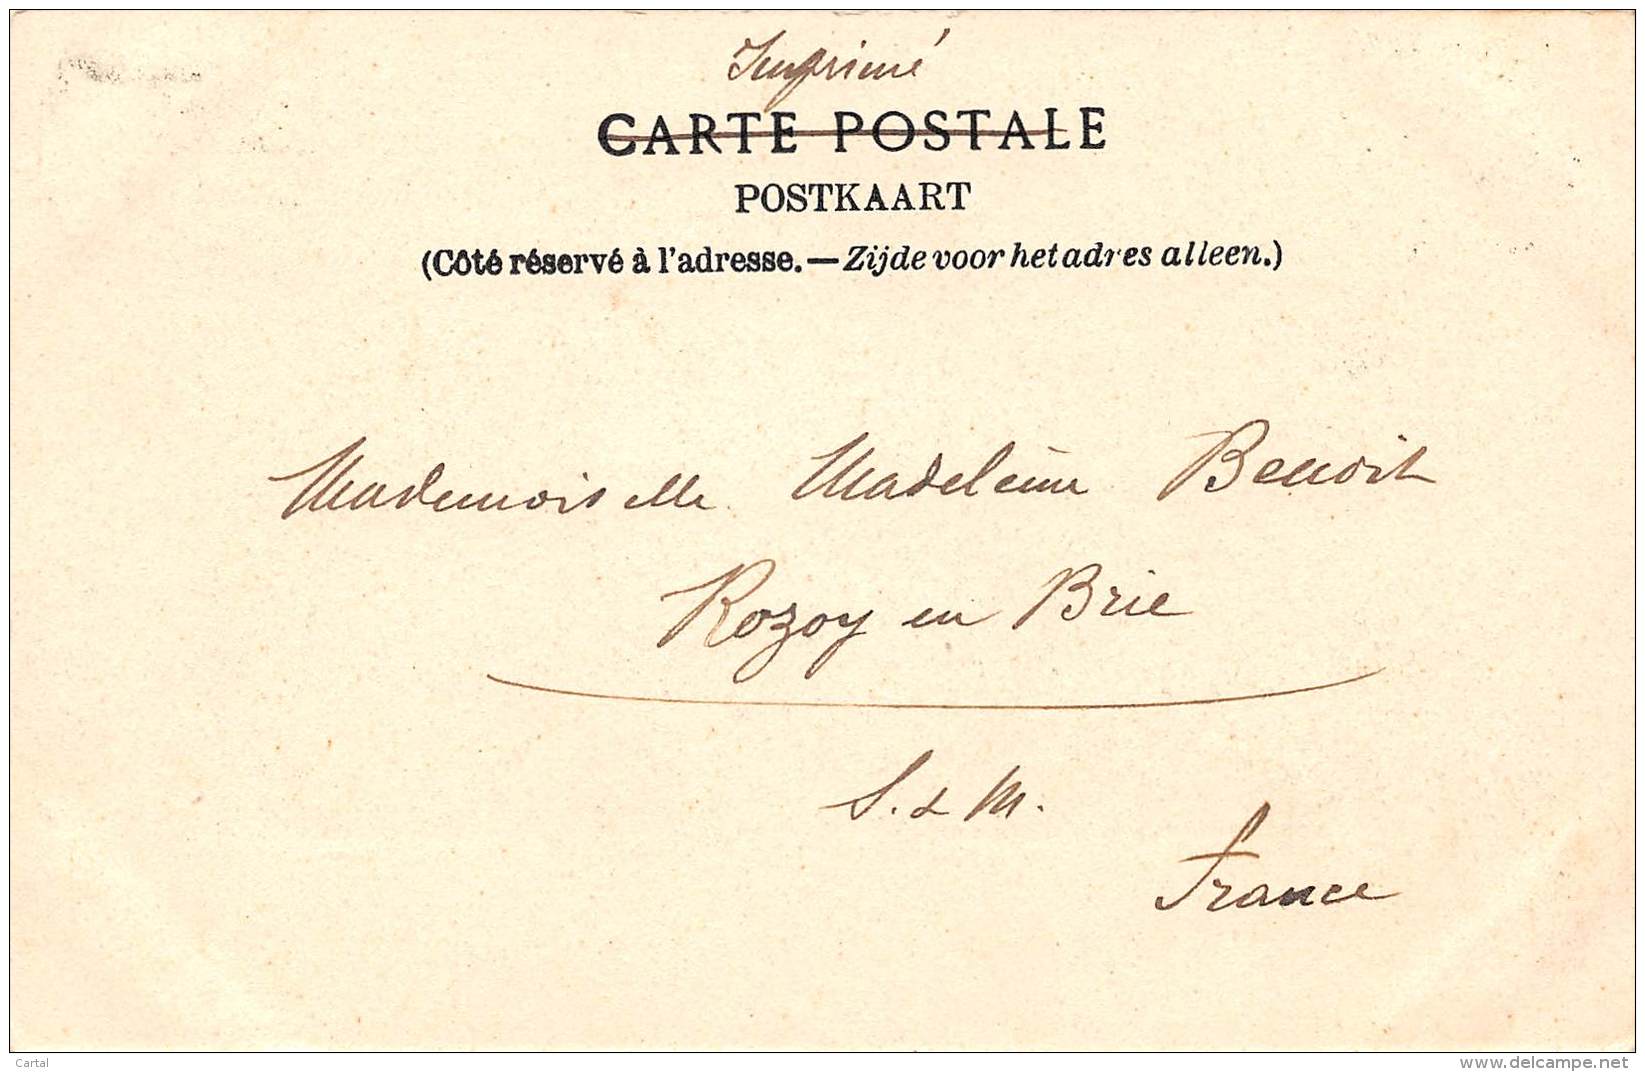 Imprimé
CARTE POSTALE
POSTKAART
(Côté réservé à l'adresse. — Zijde voor het adres alleen.)
Mademoiselle Madeleine Benoit
Rozoy en Brie
S. & M.
France
Cartal
www.delcampe.net